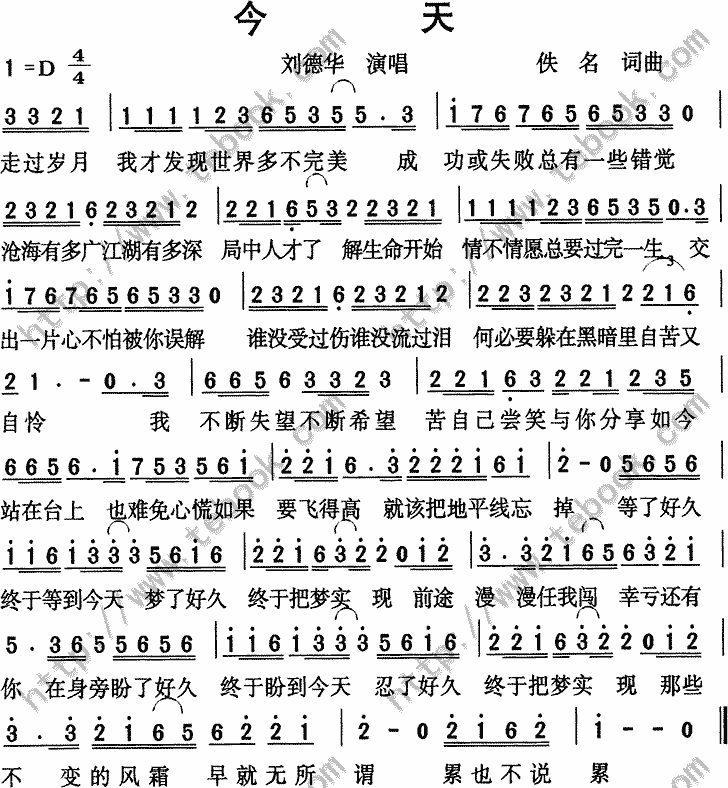 今 天
1=D 4/4 刘德华 演唱 佚 名 词曲
3 3 2 1 | 1 1 1 1 2 3 6 5 3 5 5 . 3 | i 7 6 7 6 5 6 5 3 3 0
走过岁月 我才发现世界多不完美 成 功或失败总有一些错觉
2 3 2 1 6 2 3 2 1 2 | 2 2 1 6 5 3 2 2 3 2 1 | 1 1 1 1 2 3 6 5 3 5 0 . 3
沧海有多广江湖有多深 局中人才了 解生命开始 情不情愿总要过完一生 交
i 7 6 7 6 5 6 5 3 3 0 | 2 3 2 1 6 2 3 2 1 2 | 2 2 3 2 3 2 1 2 2 2 1 6
出一片心不怕被你误解 谁没受过伤谁没流过泪 何必要躲在黑暗里自苦又
2 1 . - 0 . 3 | 6 6 5 6 3 3 2 3 | 2 2 1 6 3 2 2 1 2 3 5
自怜 我 不断失望不断希望 苦自己尝笑与你分享如今
6 6 5 6 . i 7 5 3 5 6 i | 2 2 i 6 . 3 2 2 2 i 6 i | 2 - 0 5 6 5 6
站在台上 也难免心慌如果 要飞得高 就该把地平线忘 掉 等了好久
i i 6 i 3 3 3 5 6 i 6 | 2 2 i 6 3 2 2 0 i 2 | 3 . 3 2 i 6 5 6 3 2 i
终于等到今天 梦了好久 终于把梦实 现 前途 漫 漫任我闯 幸亏还有
5 . 3 6 5 5 6 5 6 | i i 6 i 3 3 3 5 6 i 6 | 2 2 i 6 3 2 2 0 i 2
你 在身旁盼了好久 终于盼到今天 忍了好久 终于把梦实 现 那些
3 . 3 2 i 6 5 6 2 2 i | 2 - 0 2 i 6 2 | i - - 0
不 变的风霜 早就无所 谓 累也不说 累
http://www.tebook.com